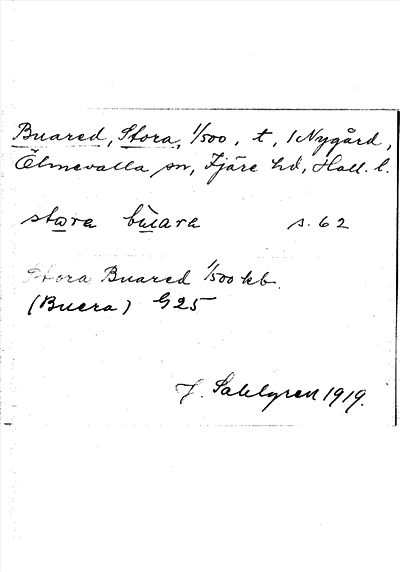 Buared, Stora, 1/500, t, 1 Nygård,
Ölmevalla sn, Fjäre hd, Hall. l.
stωra bùara s. 62
Stora Buared 1/500 kb.
(Buera) G25
J. Sahlgren 1919.